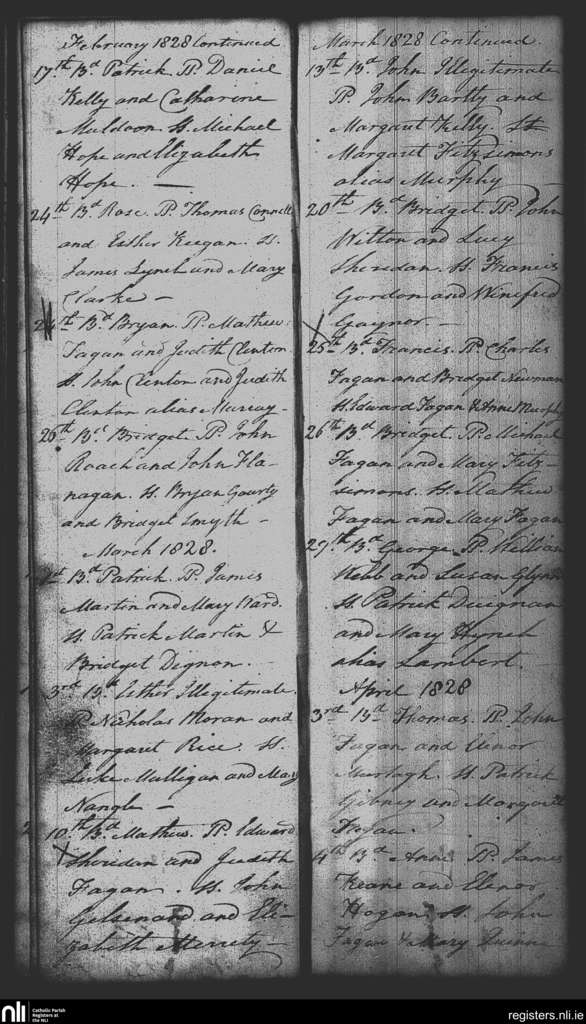 February 1828 Continued
17th Bd Patrick P. Daniel
Kelly and Catharine
Muldoon. S. Michael
Hope and Elizabeth
Hope. —
24th Bd Rose. P. Thomas Connell
and Esther Keegan. S.
James Lynch and Mary
Clarke —
24th Bd Bryan. P. Mathew
Fagan and Judith Clinton
S. John Clinton and Judith
Clinton alias Murray —
26th Bd Bridget. P. John
Roach and John Fla-
nagan. S. Bryan
and Bridget Smyth —
March 1828.
1st Bd Patrick. P. James
Martin and Mary Ward.
S. Patrick Martin &
Bridget Dignan.
3rd Bd Esther Illegitimate.
P. Nicholas Moran and
Margaret Rice. S.
Luke Mulligan and Mary
Nangle —
10th Bd Mathew. P. Edward
Sheridan and Judith
Fagan. S. John
and Eli-
zabeth
March 1828 Continued.
13th Bd John Illegitimate
P. John Bartly and
Margaret Kelly. S.
Margaret Fitzsimons
alias Murphy
20th Bd Bridget. P. John
Witton and Lucy
Sheridan. S. Francis
Gordon and Winefred
Gaynor. —
25th Bd Francis. P. Charles
Fagan and Bridget Newman
S. Edward Fagan & Anne Murphy
26th Bd Bridget. P. Michael
Fagan and Mary Fitz-
simons. S. Mathew
Fagan and Mary Fagan
29th Bd George. P. William
Webb and Susan Glynn
S. Patrick Duignan
and Mary Hynch
alias Lambert.
April 1828
3rd Bd Thomas. P. John
Fagan and Elenor
Murtagh. S. Patrick
Gibney and Margaret
Fagan.
4th Bd Anne. P. James
Keane and Elenor
Hogan. S. John
Fagan & Mary Quinn
nli
Catholic Parish
Registers at
the NLI
registers.nli.ie